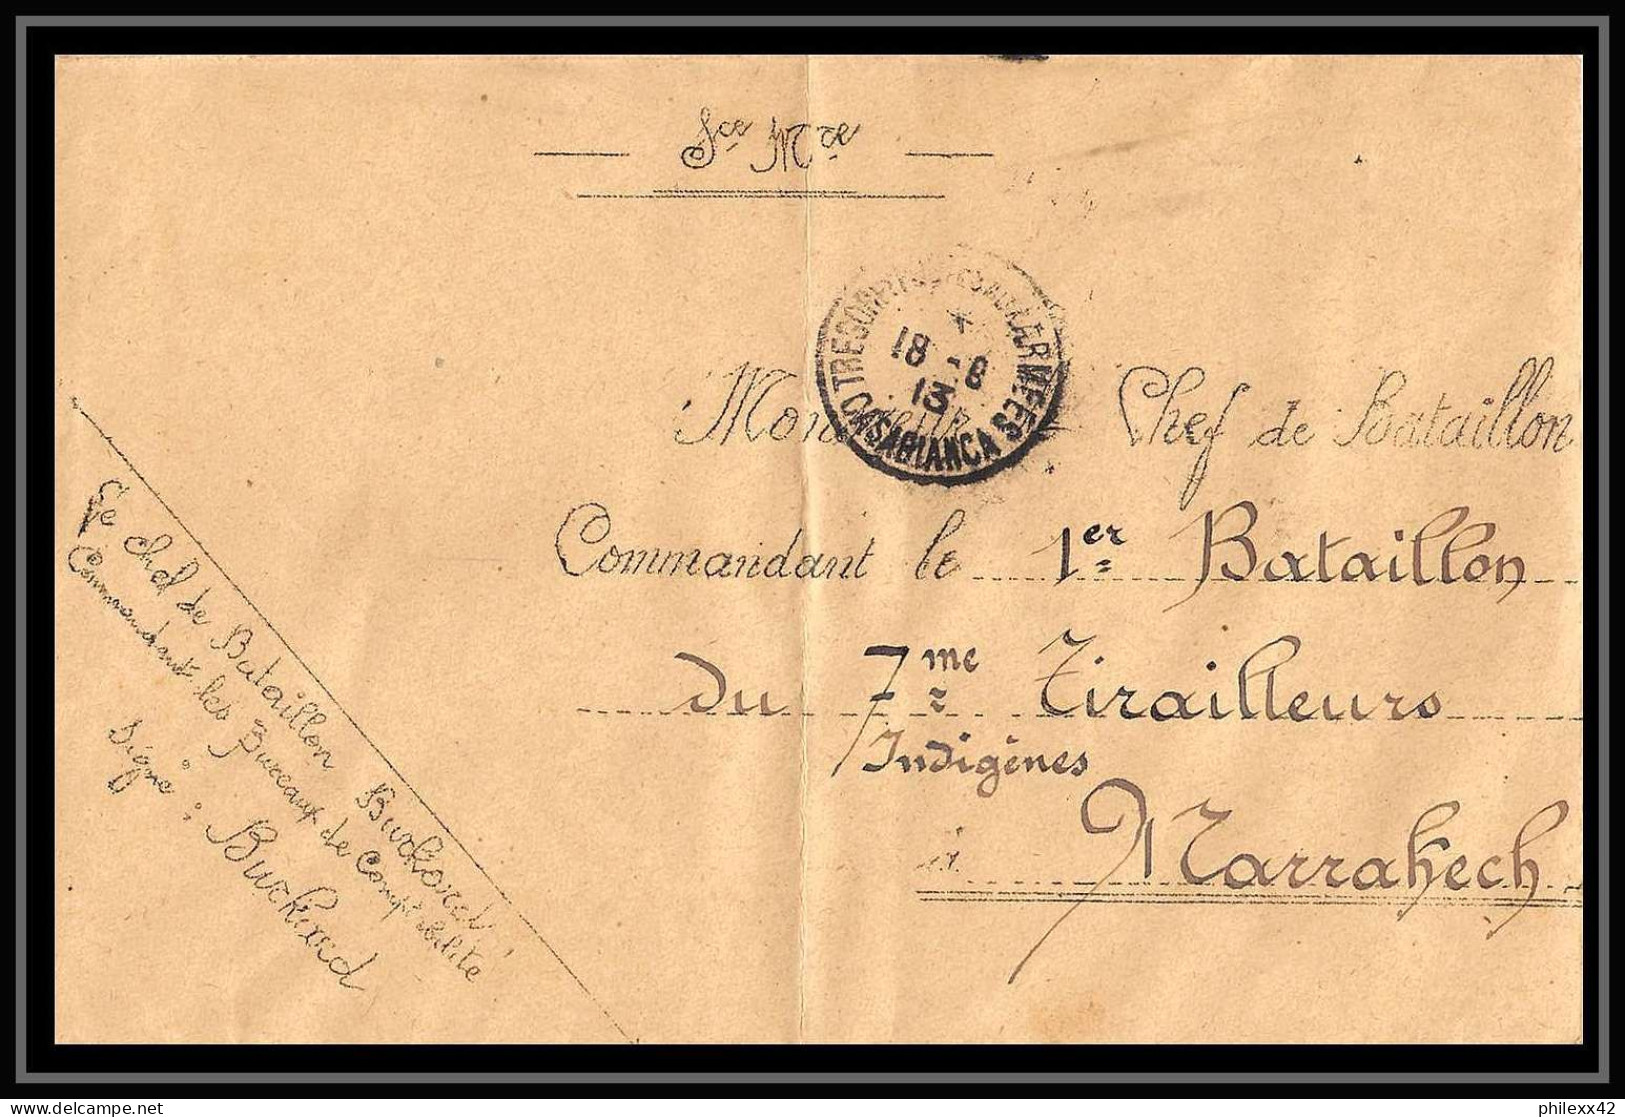 Sce Mre
TRESOR
CASABLANCA
18 -8
13
Monsieur Chef de Bataillon
Commandant le 1er Bataillon
du 7me Tirailleurs
Indigènes
à Marrakech
Le Chef de Bataillon Burckard
Commandant les Bureaux de Comptabilité
Signé : Burckard
philexx42
delcampe.net